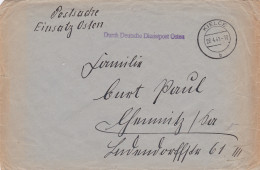 Postsache
Einsatz Osten
Durch Deutsche Dienstpost Osten
KIELCE
Familie
Curt Paul
Chemnitz / Sa
Ludendorffstr 61 III